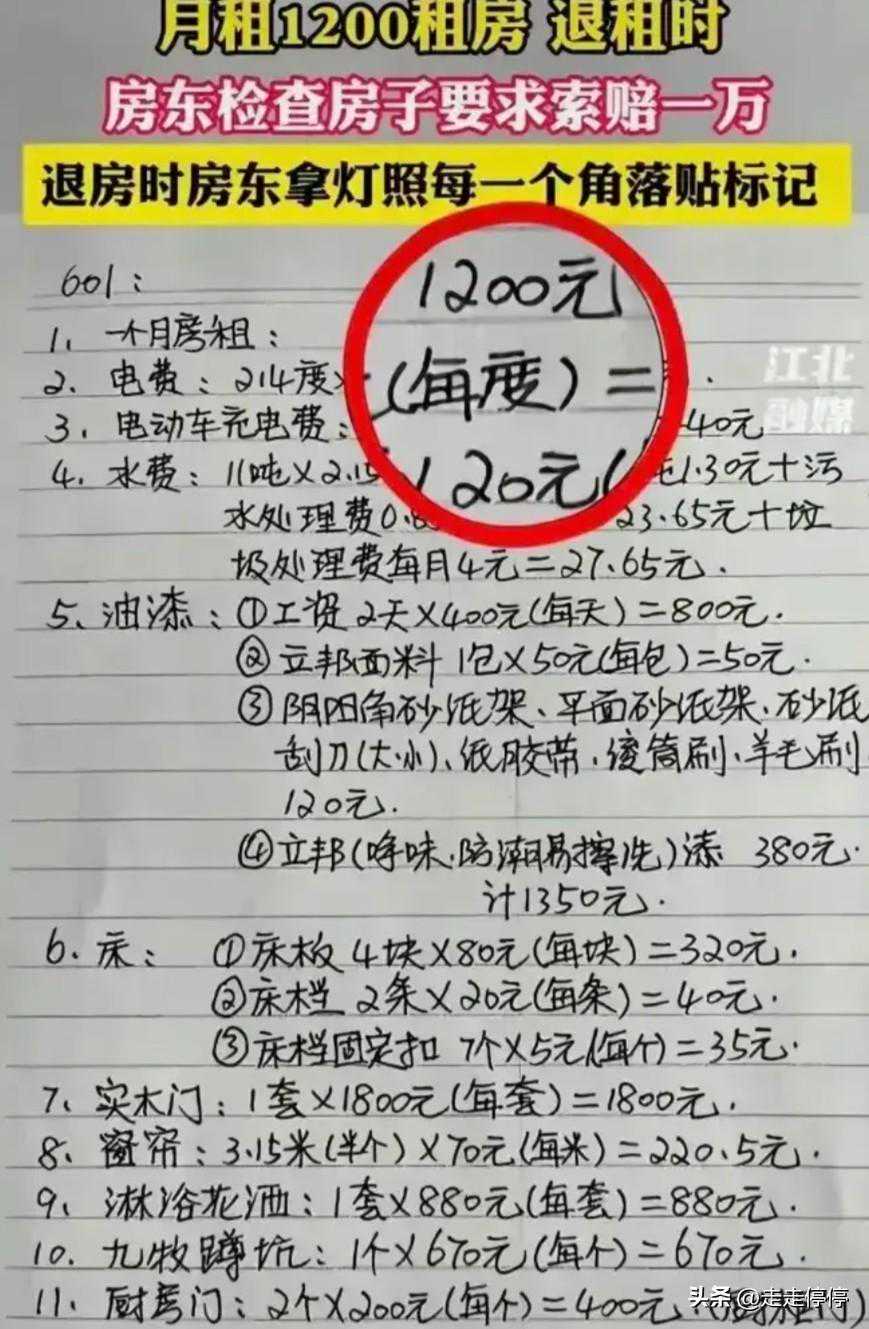 月租1200租房 退租时
房东检查房子要求索赔一万
退房时房东拿灯照每一个角落贴标记
601:
1200元
1、一个月房租:
2、电费:214度× (每度)=
江北
融媒
3、电动车充电费: 40元
120元(
4、水费:11吨×2.15 吨1.30元+污
水处理费0. 23.65元+垃
圾处理费每月4元=27.65元.
5、油漆:①工资 2天×400元(每天)=800元.
②立邦面料 1包×50元(每包)=50元.
③阴阳角砂纸架、平面砂纸架、砂纸
刮刀(大小)、纸胶带、滚筒刷、羊毛刷
120元.
④立邦(净味、防潮易擦洗)漆 380元.
计1350元.
6、床: ①床板 4块×80元(每块)=320元.
②床档 2条×20元(每条)=40元.
③床档固定扣 7个×5元(每个)=35元.
7、实木门:1套×1800元(每套)=1800元.
8、窗帘:3.15米(半个)×70元(每米)=220.5元.
9、淋浴花洒:1套×880元(每套)=880元.
10、九牧蹲坑:1个×670元(每个)=670元.
11、厨房门:2个×200元(每个)=400元.
头条 @走走停停